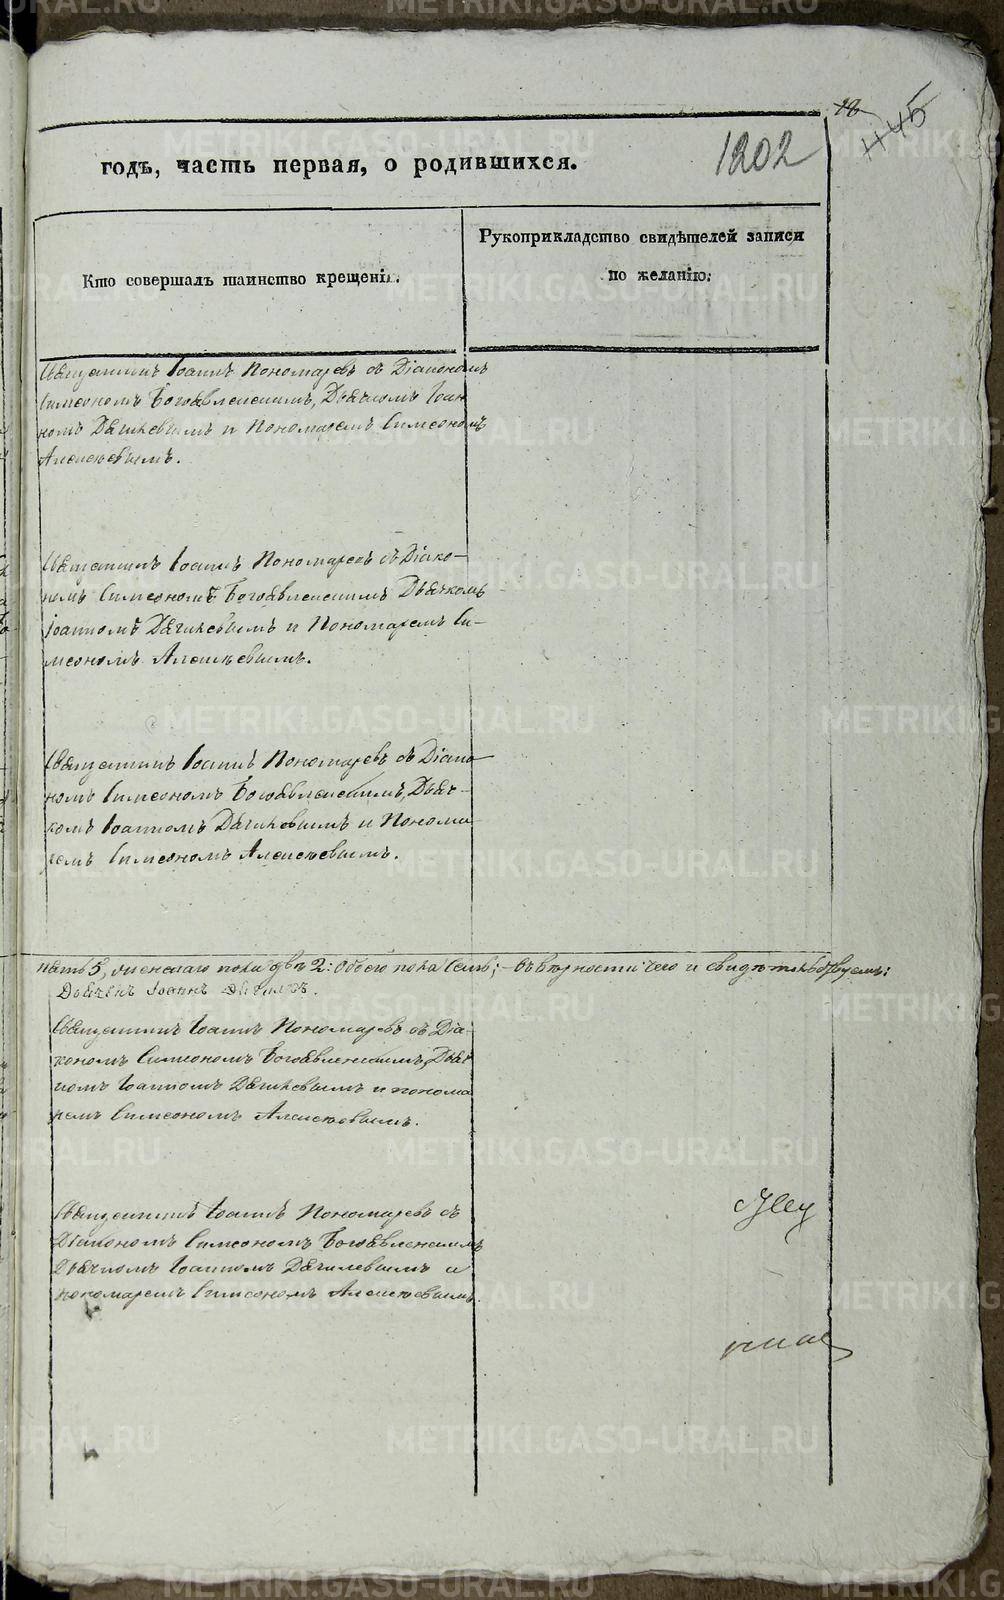 18
1145
1202
годъ, часть первая, о родившихся.
Кто совершалъ таинство крещенія.
Рукоприкладство свидѣтелей записи
по желанію.
Священникъ Іоаннъ Пономаревъ съ Діакономъ
Симеономъ Богоявленскимъ, Дьячкомъ Іоан
номъ и Пономаремъ Симеономъ
Алексѣевымъ.
Священникъ Іоаннъ Пономаревъ съ Діако-
номъ Симеономъ Богоявленскимъ Дьячкомъ
Іоанномъ и Пономаремъ Си-
меономъ Алексѣевымъ.
Священникъ Іоаннъ Пономаревъ съ Діако
номъ Симеономъ Богоявленскимъ, Дьяч-
комъ Іоанномъ и Понома-
ремъ Симеономъ Алексѣевымъ.
пять 5, женскаго пола два 2: Обоего пола семь; - въ вѣрности чего и свидѣтельствуемъ:
Дьячекъ Іоаннъ
Священникъ Іоаннъ Пономаревъ съ Діа-
кономъ Симеономъ Богоявленскимъ, Дьяч
комъ Іоанномъ и понома
ремъ Симеономъ Алексѣевымъ.
Священникъ Іоаннъ Пономаревъ съ
Діакономъ Симеономъ Богоявленскимъ
Дьячкомъ Іоанномъ и
пономаремъ Симеономъ Алексѣевымъ.
METRIKI.GASO-URAL.RU